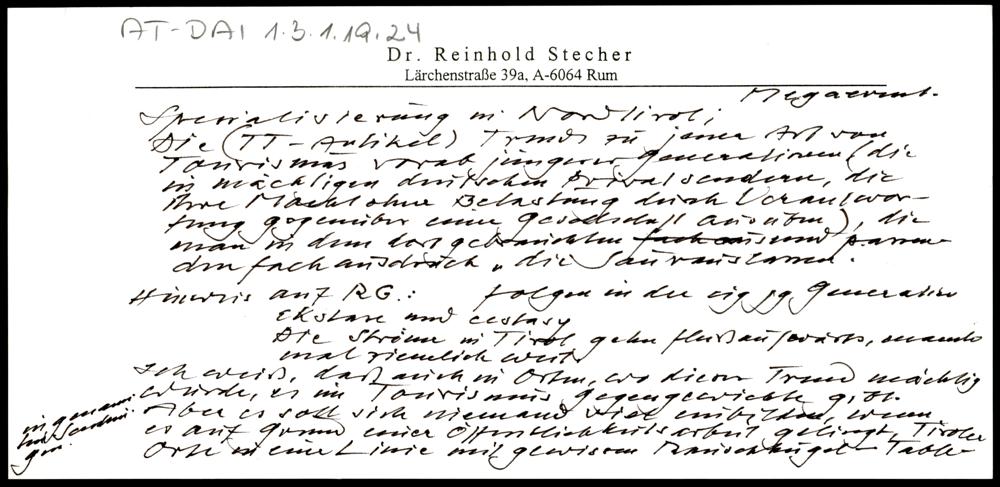 AT-DAI 1.3.1.19.24
Dr. Reinhold Stecher
Lärchenstraße 39a, A-6064 Rum
Megaevent.
Spezialisierung in Nordtirol;
Die (TT-Artikel) Trends zu jener Art von
Tourismus vorab jüngerer Generationen (die
in mächtigen deutschen Privatsendern, die
ihre Macht ohne Belastung durch Verantwor-
tung gegenüber einer Gesellschaft ausüben), die
man in dem dort gebrauchten und passen-
den Fachausdruck „die Sau rauslassen".
Hinweis auf RG.: Folgen in der eig jg Generation
Ekstase und ecstasy
Die Ströme in Tirol gehn flußaufwärts, manch-
mal ziemlich weit.
Ich weiß, daß auch in Orten, wo dieser Trend mächtig
wurde, es im Tourismus Gegengewichte gibt.
Aber es soll sich niemand viel einbilden, wenn
es auf Grund einer Öffentlichkeitsarbeit gelingt, Tiroler
Orte in eine Linie mit gewissem Rauschkugel-Table